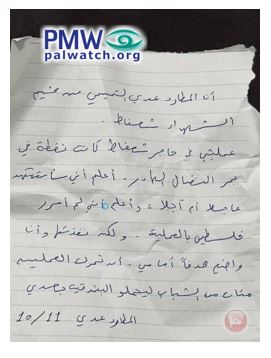 PMW
palwatch.org
أنا المطارد عدي التميمي من مخيم
الشهداء شعفاط.
عمليتي في حاجز شعفاط كانت نقطة في
بحر النضال الهادر. أعلم أني سأستشهد
عاجلا أم آجلا، وأعلم أنني لم أحرر
فلسطين بالعملية. ولكن نفذتها وأنا
واضع هدفاً أمامي. أن تحرك العملية
مئات من الشباب ليحملو البندقية بعدي
المطارد عدي 10/11